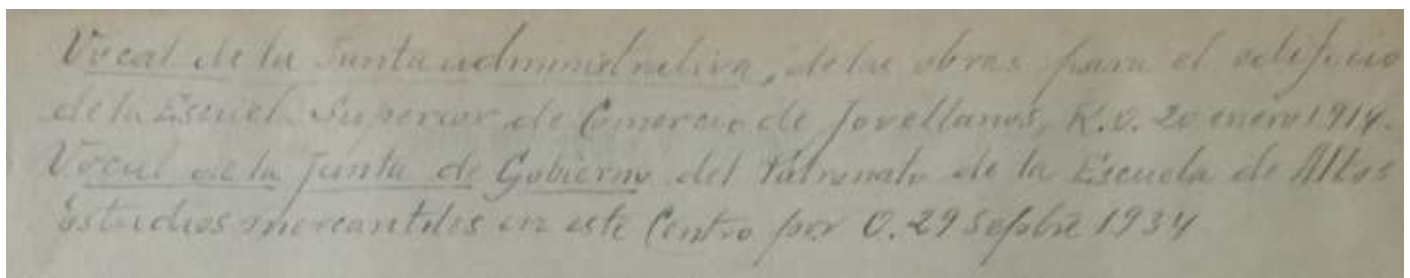 Vocal de la Junta administrativa, de las obras para el edificio
de la Escuel. Superior de Comercio de Jovellanos, R.O. 20 enero 1914.
Vocal de la Junta de Gobierno del Patronato de la Escuela de Altos
Estudios mercantiles en este Centro por O. 29 Sepbre 1934